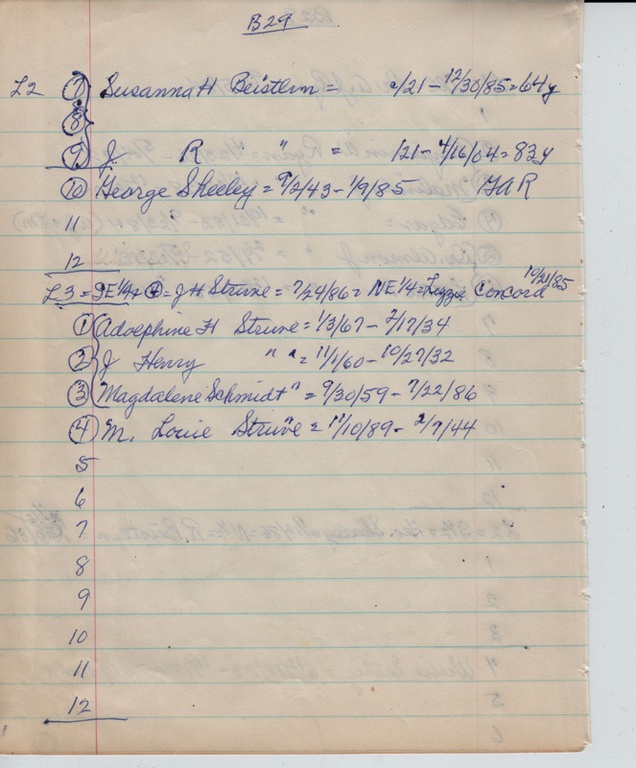 B29
L2 (7) Susanna H Beistlem = /21 - 12/30/85 = 64y
(8)
(9) J R " = /21 - 4/16/04 = 83y
(10) George Sheeley = 9/2/43 - 1/9/85 GAR
11
12
L3 = SE 1/4 + = J H Struve = 7/24/86 = NE 1/4 = Lizzie Concord 10/21/85
(1) Adolphine H Struve = 1/3/67 - 2/17/34
(2) J Henry " " = 11/1/60 - 10/27/32
(3) Magdalene Schmidt " = 9/30/59 - 7/22/86
(4) M. Louie Struve = 11/10/89 - 2/7/44
5
6
7
8
9
10
11
12